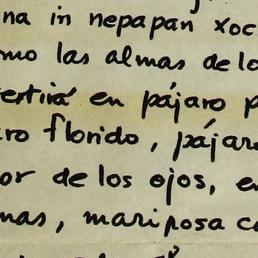 na in nepapan xoc
omo las almas de lo
ertirá en pájaro p
ro florido, pájar
or de los ojos, e
mas, mariposa c